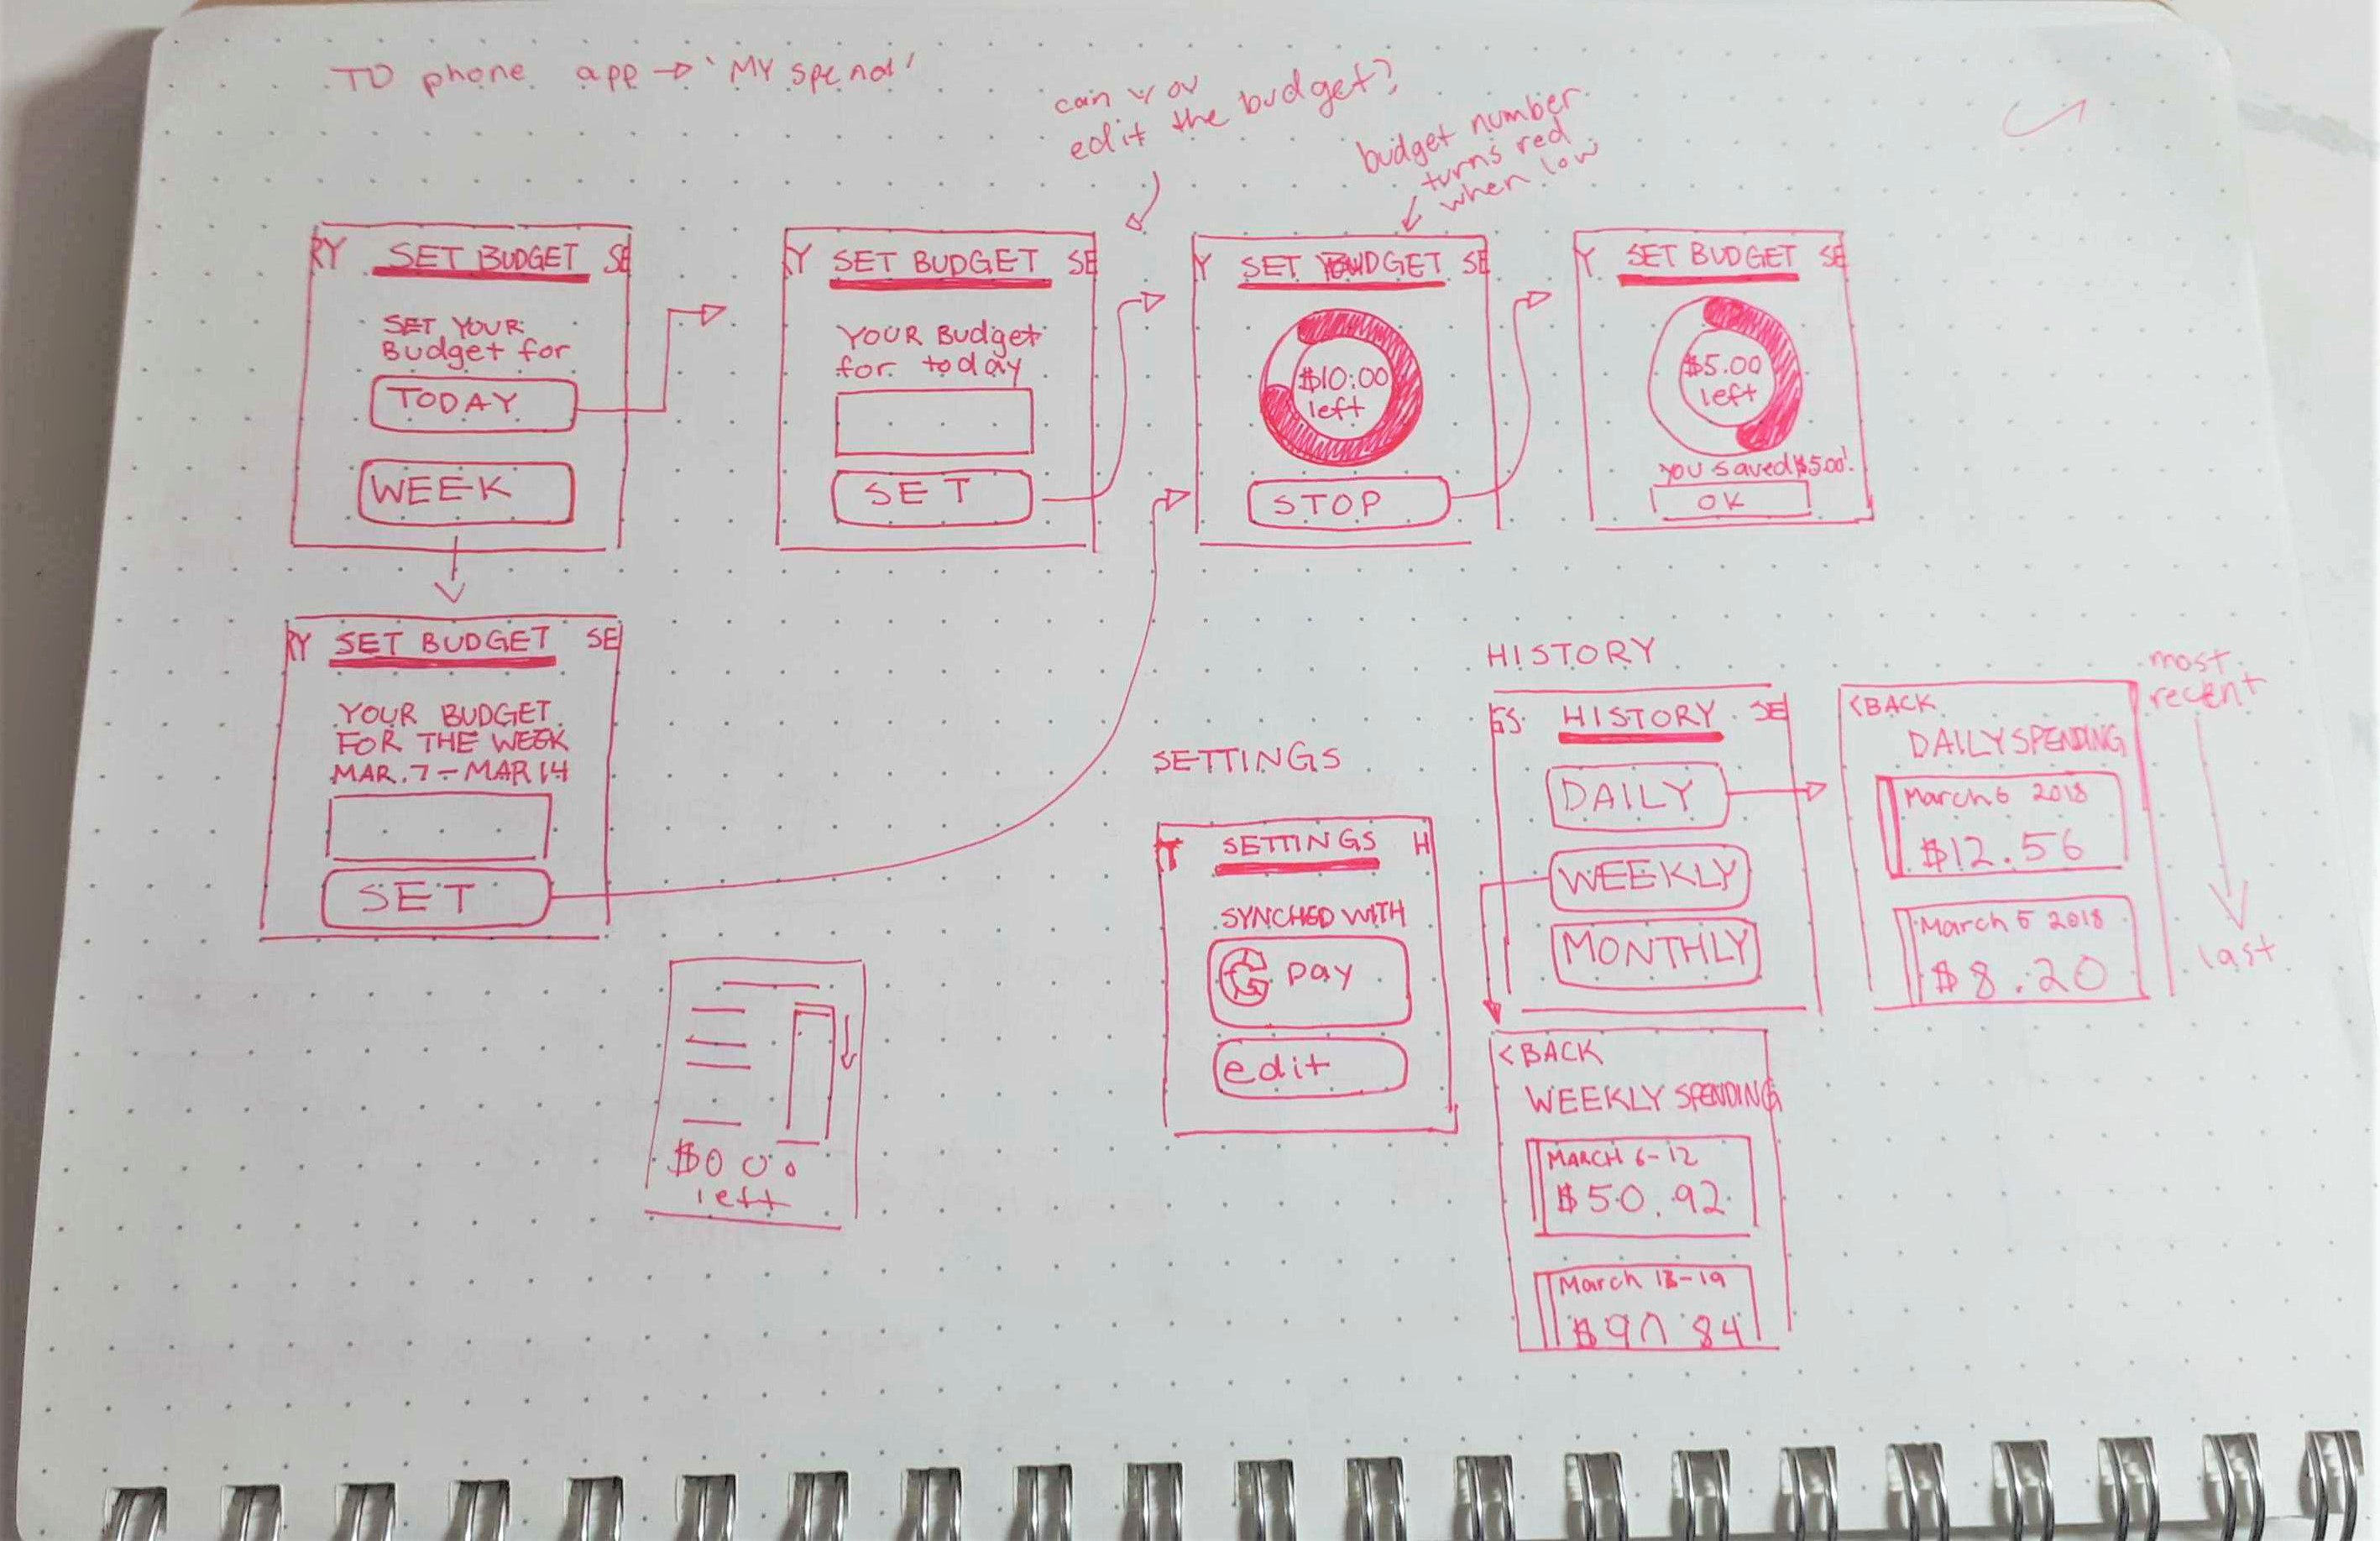 TO phone app → 'MY spend'
can you
edit the budget?
budget number
turns red
when low
RY SET BUDGET SE
SET YOUR
Budget for
TODAY
WEEK
Y SET BUDGET SE
YOUR Budget
for today
SET
Y SET BUDGET SE
$10.00
left
STOP
Y SET BUDGET SE
$5.00
left
you saved $5.00!
OK
RY SET BUDGET SE
YOUR BUDGET
FOR THE WEEK
MAR. 7 - MAR 14
SET
$0 00
left
SETTINGS
T SETTINGS H
SYNCHED WITH
G pay
edit
HISTORY
GS HISTORY SE
DAILY
WEEKLY
MONTHLY
<BACK
DAILY SPENDING
March 6 2018
$12.56
March 5 2018
$8.20
most
recent
last
<BACK
WEEKLY SPENDING
MARCH 6-12
$50.92
March 13-19
$90 84